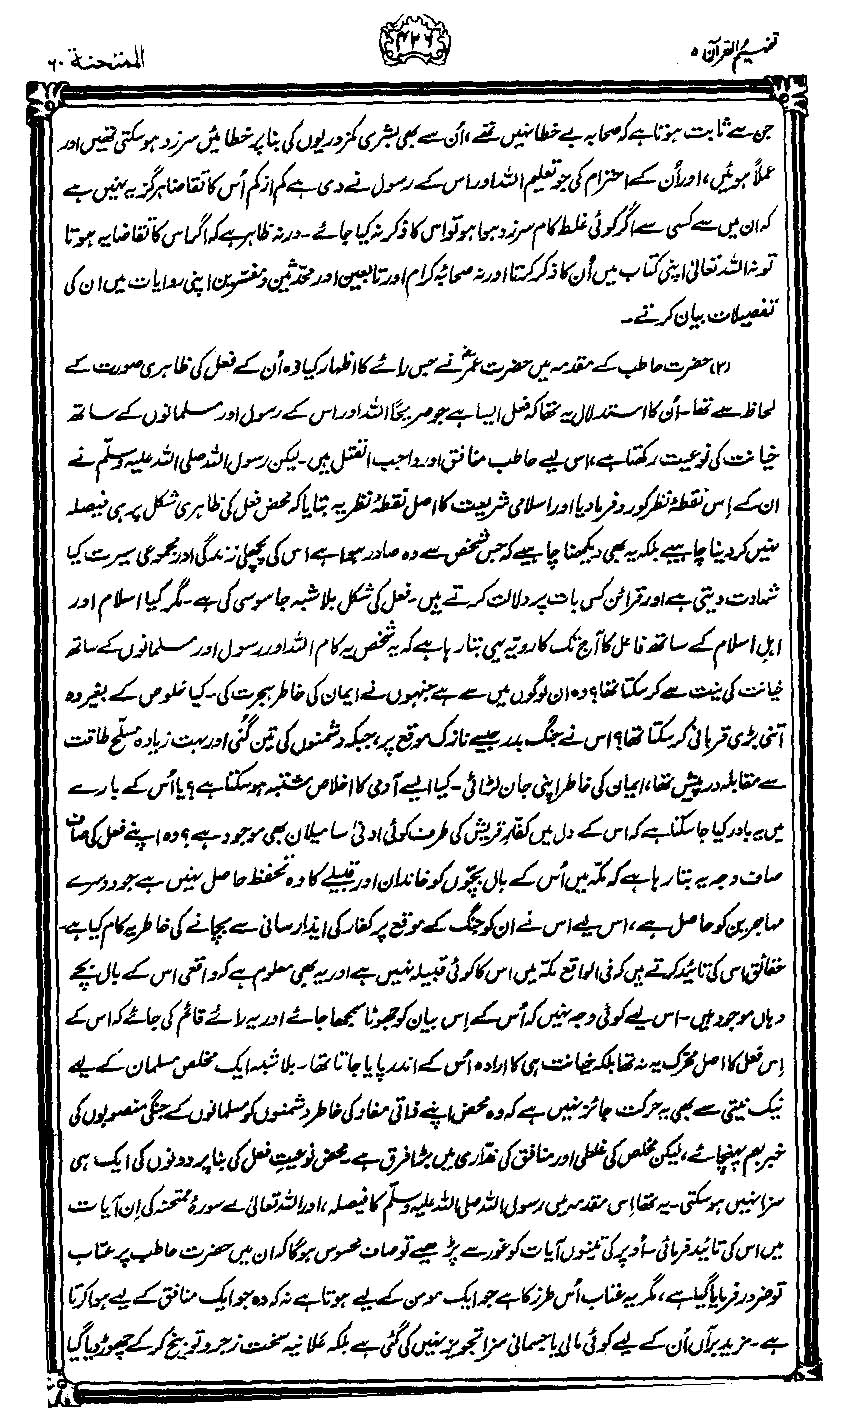 تفہیم القرآن ۵
۴۲۶
الممتحنۃ ۶۰
جن سے ثابت ہوتا ہے کہ صحابہ بے خطا نہیں تھے، اُن سے بھی بشری کمزوریوں کی بنا پر خطائیں سرزد ہو سکتی تھیں اور
عملاً ہوئیں، اور اُن کے احترام کی جو تعلیم اللہ اور اس کے رسول نے دی ہے کم از کم اُس کا تقاضا ہرگز یہ نہیں ہے
کہ ان میں سے کسی سے اگر کوئی غلط کام سرزد ہوا ہو تو اس کا ذکر نہ کیا جائے۔ ورنہ ظاہر ہے کہ اگر اس کا تقاضا یہ ہوتا
تو نہ اللہ تعالیٰ اپنی کتاب میں اُن کا ذکر کرتا اور نہ صحابۂ کرام اور تابعین اور محدثین و مفسرین اپنی روایات میں ان کی
تفصیلات بیان کرتے۔
(۲) حضرت حاطب کے مقدمہ میں حضرت عمرؓ نے جس رائے کا اظہار کیا وہ اُن کے فعل کی ظاہری صورت کے
لحاظ سے تھا۔ اُن کا استدلال یہ تھا کہ فعل ایسا ہے جو صریحاً اللہ اور اس کے رسول اور مسلمانوں کے ساتھ
خیانت کی نوعیت رکھتا ہے، اس لیے حاطب منافق اور واجب القتل ہیں۔ لیکن رسول اللہ صلی اللہ علیہ وسلم نے
ان کے اِس نقطۂ نظر کو رد فرما دیا اور اسلامی شریعت کا اصل نقطۂ نظر یہ بتایا کہ محض فعل کی ظاہری شکل پر ہی فیصلہ
نہیں کر دینا چاہیے بلکہ یہ بھی دیکھنا چاہیے کہ جس شخص سے وہ صادر ہوا ہے اس کی پچھلی زندگی اور مجموعی سیرت کیا
شہادت دیتی ہے اور قرائن کس بات پر دلالت کرتے ہیں۔ فعل کی شکل بلا شبہ جاسوسی کی ہے۔ مگر کیا اسلام اور
اہلِ اسلام کے ساتھ فاعل کا آج تک کا رویہ یہی بتا رہا ہے کہ یہ شخص یہ کام اللہ اور رسول اور مسلمانوں کے ساتھ
خیانت کی نیت سے کر سکتا تھا؟ وہ ان لوگوں میں سے ہے جنہوں نے ایمان کی خاطر ہجرت کی۔ کیا خلوص کے بغیر وہ
اتنی بڑی قربانی کر سکتا تھا؟ اس نے جنگ بدر جیسے نازک موقع پر، جبکہ دشمنوں کی تین گنی اور بہت زیادہ مسلّح طاقت
سے مقابلہ درپیش تھا، ایمان کی خاطر اپنی جان لڑائی۔ کیا ایسے آدمی کا اخلاص مشتبہ ہو سکتا ہے؟ یا اُس کے بارے
میں یہ باور کیا جا سکتا ہے کہ اس کے دل میں کفار قریش کی طرف کوئی ادنیٰ سا میلان بھی موجود ہے؟ وہ اپنے فعل کی صاف
صاف وجہ یہ بتا رہا ہے کہ مکہ میں اُس کے بال بچّوں کو خاندان اور قبیلے کا وہ تحفظ حاصل نہیں ہے جو دوسرے
مہاجرین کو حاصل ہے، اس لیے اس نے ان کو جنگ کے موقع پر کفار کی ایذا رسانی سے بچانے کی خاطر یہ کام کیا ہے۔
حقائق اس کی تائید کرتے ہیں کہ فی الواقع مکّہ میں اس کا کوئی قبیلہ نہیں ہے اور یہ بھی معلوم ہے کہ واقعی اس کے بال بچے
وہاں موجود ہیں۔ اس لیے کوئی وجہ نہیں کہ اُس کے اِس بیان کو جھوٹا سمجھا جائے اور یہ رائے قائم کی جائے کہ اس کے
اِس فعل کا اصل محرّک یہ نہ تھا بلکہ خیانت ہی کا ارادہ اُس کے اندر پایا جاتا تھا۔ بلا شبہ ایک مخلص مسلمان کے لیے
نیک نیتی سے بھی یہ حرکت جائز نہیں ہے کہ وہ محض اپنے ذاتی مفاد کی خاطر دشمنوں کو مسلمانوں کے جنگی منصوبوں کی
خبر بہم پہنچائے، لیکن مخلص کی غلطی اور منافق کی غداری میں بڑا فرق ہے۔ محض نوعیتِ فعل کی بنا پر دونوں کی ایک ہی
سزا نہیں ہو سکتی۔ یہ تھا اِس مقدمہ میں رسول اللہ صلی اللہ علیہ وسلم کا فیصلہ، اور اللہ تعالیٰ نے سورۂ ممتحنہ کی اِن آیات
میں اس کی تائید فرمائی۔ اوپر کی تینوں آیات کو غور سے پڑھیے تو صاف محسوس ہوگا کہ ان میں حضرت حاطب پر عتاب
تو ضرور فرمایا گیا ہے، مگر یہ عتاب اُس طرز کا ہے جو ایک مومن کے لیے ہوتا ہے نہ کہ وہ جو ایک منافق کے لیے ہوا کرتا
ہے۔ مزید برآں اُن کے لیے کوئی مالی یا جسمانی سزا تجویز نہیں کی گئی ہے بلکہ علانیہ سخت زجر و توبیخ کر کے چھوڑ دیا گیا